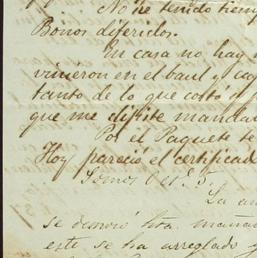 No he tenido tiem
Bonos diferidos.
En casa no hay
vinieron en el baul y
tanto de lo que costo
que me dijiste mandar
Por el Paquete
Hoy pareció el certificad
La
se demoró hta. mañan
este se ha arreglado y